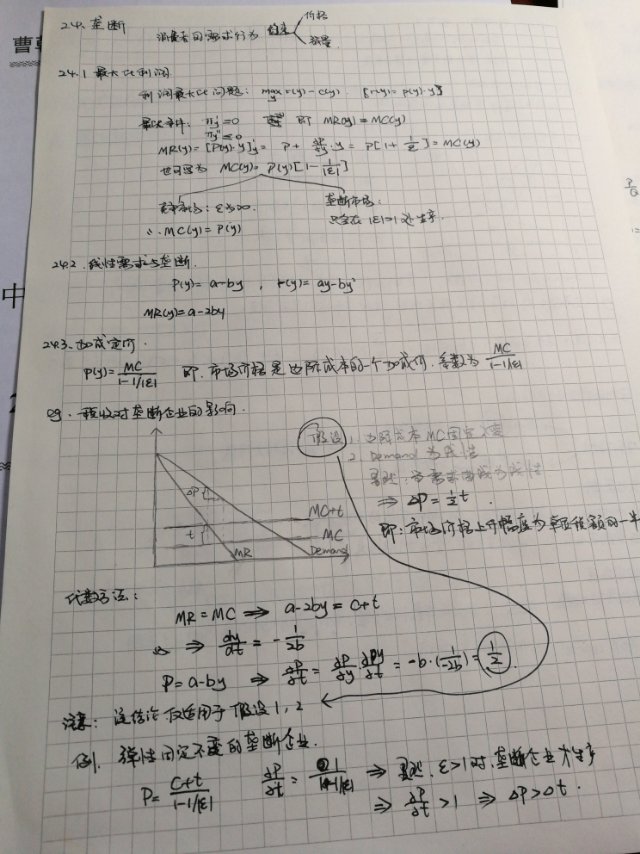 曹
中
24. 垄断
消费者的需求行为 约束
价格
数量
24.1 最大化利润
利润最大化问题: max r(y) - c(y) [r(y) = p(y)·y]
y
最大条件: π'y = 0 即 MR(y) = MC(y)
π''y ≤ 0
MR(y) = [P(y)·y]'y = P + ∂P/∂y · y = P[1 + 1/ε] = MC(y)
也可写为 MC(y) = P(y)[1 - 1/|ε|]
竞争市场: ε → ∞
∴ MC(y) = P(y)
垄断市场:
只会在 |ε|>1 处生产.
24.2. 线性需求与垄断.
P(y) = a-by , r(y) = ay-by²
MR(y) = a-2by
24.3. 加成定价.
P(y) = MC/1-1/|ε| 即. 市场价格是边际成本的一个加成价. 系数为 MC/1-1/|ε|
eg. 税收对垄断企业的影响.
假设 1. 边际成本MC固定不变
2. Demand 为线性
显然, 为线性
⇒ ΔP = ½t.
即: 市场价格上升幅度为单位税额的一半
ΔP
t
MC+t
MC
MR
Demand
代数方法:
MR = MC ⇒ a-2by = c+t
⇒ dy/dt = -1/2b
P = a-by ⇒ ∂P/∂t = ∂P/∂y ∂y/∂t = -b·(-1/2b) = 1/2.
注意: 该结论仅适用于假设1, 2
例. 弹性固定不变的垄断企业.
P = c+t/1-1/|ε| ∂P/∂t = 1/1-1/|ε| ⇒ 显然, ε>1时, 垄断企业才生产
⇒ ∂P/∂t > 1 ⇒ ΔP > Δt.